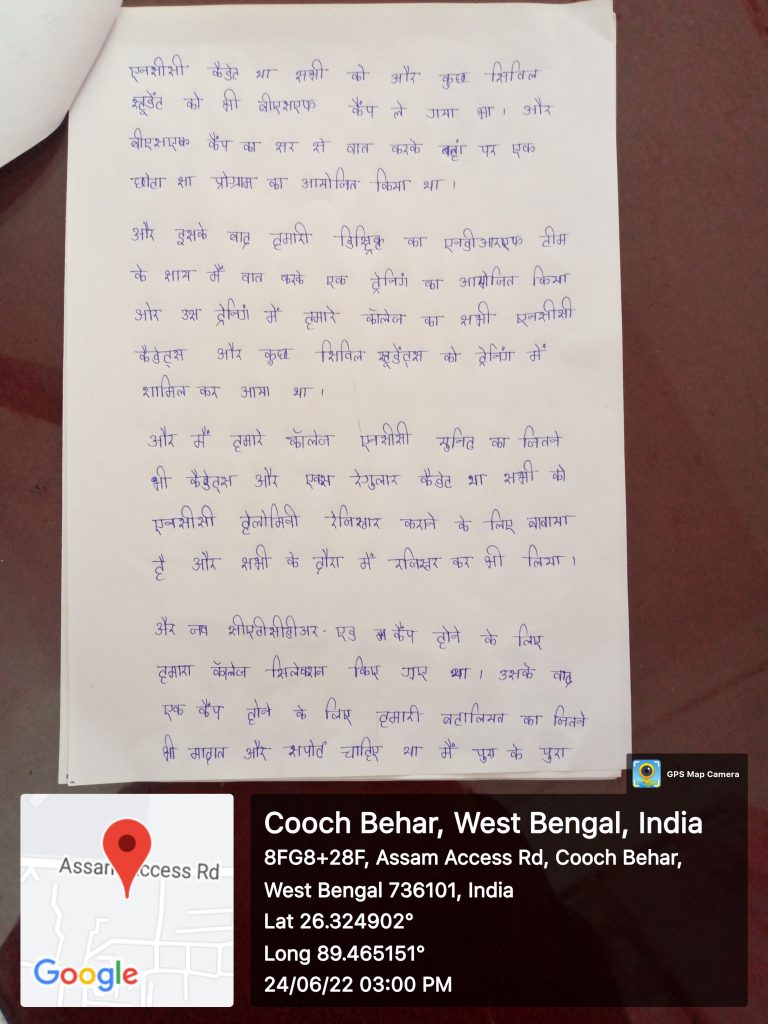 एनसीसी कैडेट था सभी को और कुछ सिविल
स्टूडेंट को भी बीएसएफ कैंप ले गया था। और
बीएसएफ कैंप का सर से बात करके वहां पर एक
छोता सा प्रोग्राम का आयोजित किया था।
और इसके बाद हमारी डिस्ट्रिक्ट का एनडीआरएफ टीम
के साथ मैं बात करके एक ट्रेनिंग का आयोजित किया
ओर उस ट्रेनिंग में हमारे कॉलेज का सभी एनसीसी
कैडेट्स और कुछ सिविल स्टूडेंट्स को ट्रेनिंग में
शामिल कर आया था।
और मैं हमारे कॉलेज एनसीसी यूनिट का जितने
भी कैडेट्स और एक्स रेगुलार कैडेट था सभी को
एनसीसी रेजिस्टार कराने के लिए
है और सभी के द्वारा में रजिस्टर कर भी लिया।
और जब कैंप होने के लिए
हमारा कॉलेज सिलेक्शन किए गए था। उसके बाद
एक कैंप होने के लिए हमारी बटालियन का जितने
भी और सपोर्ट चाहिए था मैं पुरा के पुरा
GPS Map Camera
Assam Access Rd
Google
Cooch Behar, West Bengal, India
8FG8+28F, Assam Access Rd, Cooch Behar,
West Bengal 736101, India
Lat 26.324902°
Long 89.465151°
24/06/22 03:00 PM